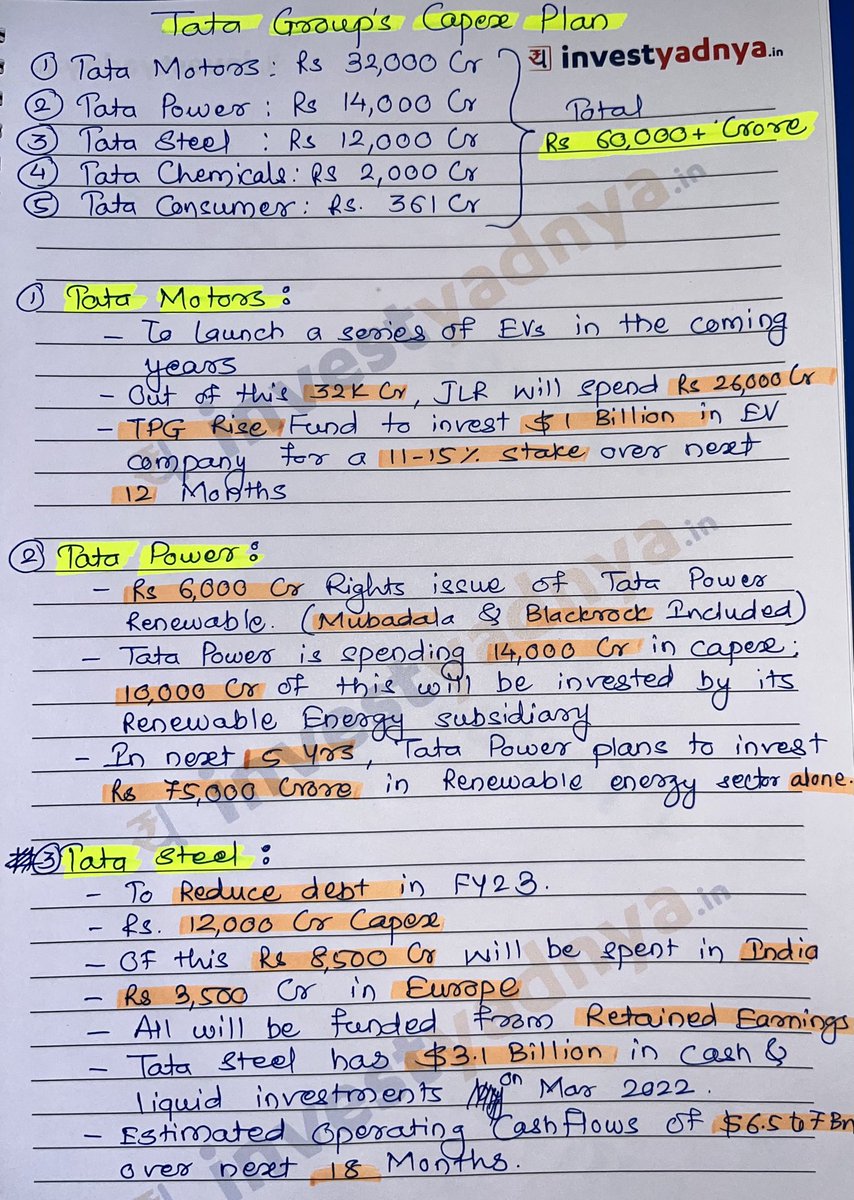 Tata Group's Capex Plan
य investyadnya.in
① Tata Motors : Rs 32,000 Cr
② Tata Power : Rs 14,000 Cr
③ Tata Steel : Rs 12,000 Cr
④ Tata Chemicals : Rs 2,000 Cr
⑤ Tata Consumer : Rs. 361 Cr
Total
Rs 60,000+ Crore
① Tata Motors :
- To launch a series of EVs in the coming
years
- Out of this 32K Cr, JLR will spend Rs 26,000 Cr
- TPG Rise Fund to invest $1 Billion in EV
company for a 11-15% stake over next
12 Months
② Tata Power :
- Rs 6,000 Cr Rights issue of Tata Power
Renewable. (Mubadala & Blackrock Included)
- Tata Power is spending 14,000 Cr in capex;
10,000 Cr of this will be invested by its
Renewable Energy subsidiary
- In next 5 Yrs, Tata Power plans to invest
Rs 75,000 Crore in Renewable energy sector alone.
③ Tata Steel :
- To Reduce debt in FY23.
- Rs. 12,000 Cr Capex
- Of this Rs 8,500 Cr will be spent in India
- Rs 3,500 Cr in Europe
- All will be funded from Retained Earnings
- Tata Steel has $3.1 Billion in cash &
liquid investments on Mar 2022.
- Estimated Operating Cashflows of $6.5 to 7 Bn
over next 18 Months.
य investyadnya.in
य investyadnya.in
य investyadnya.in